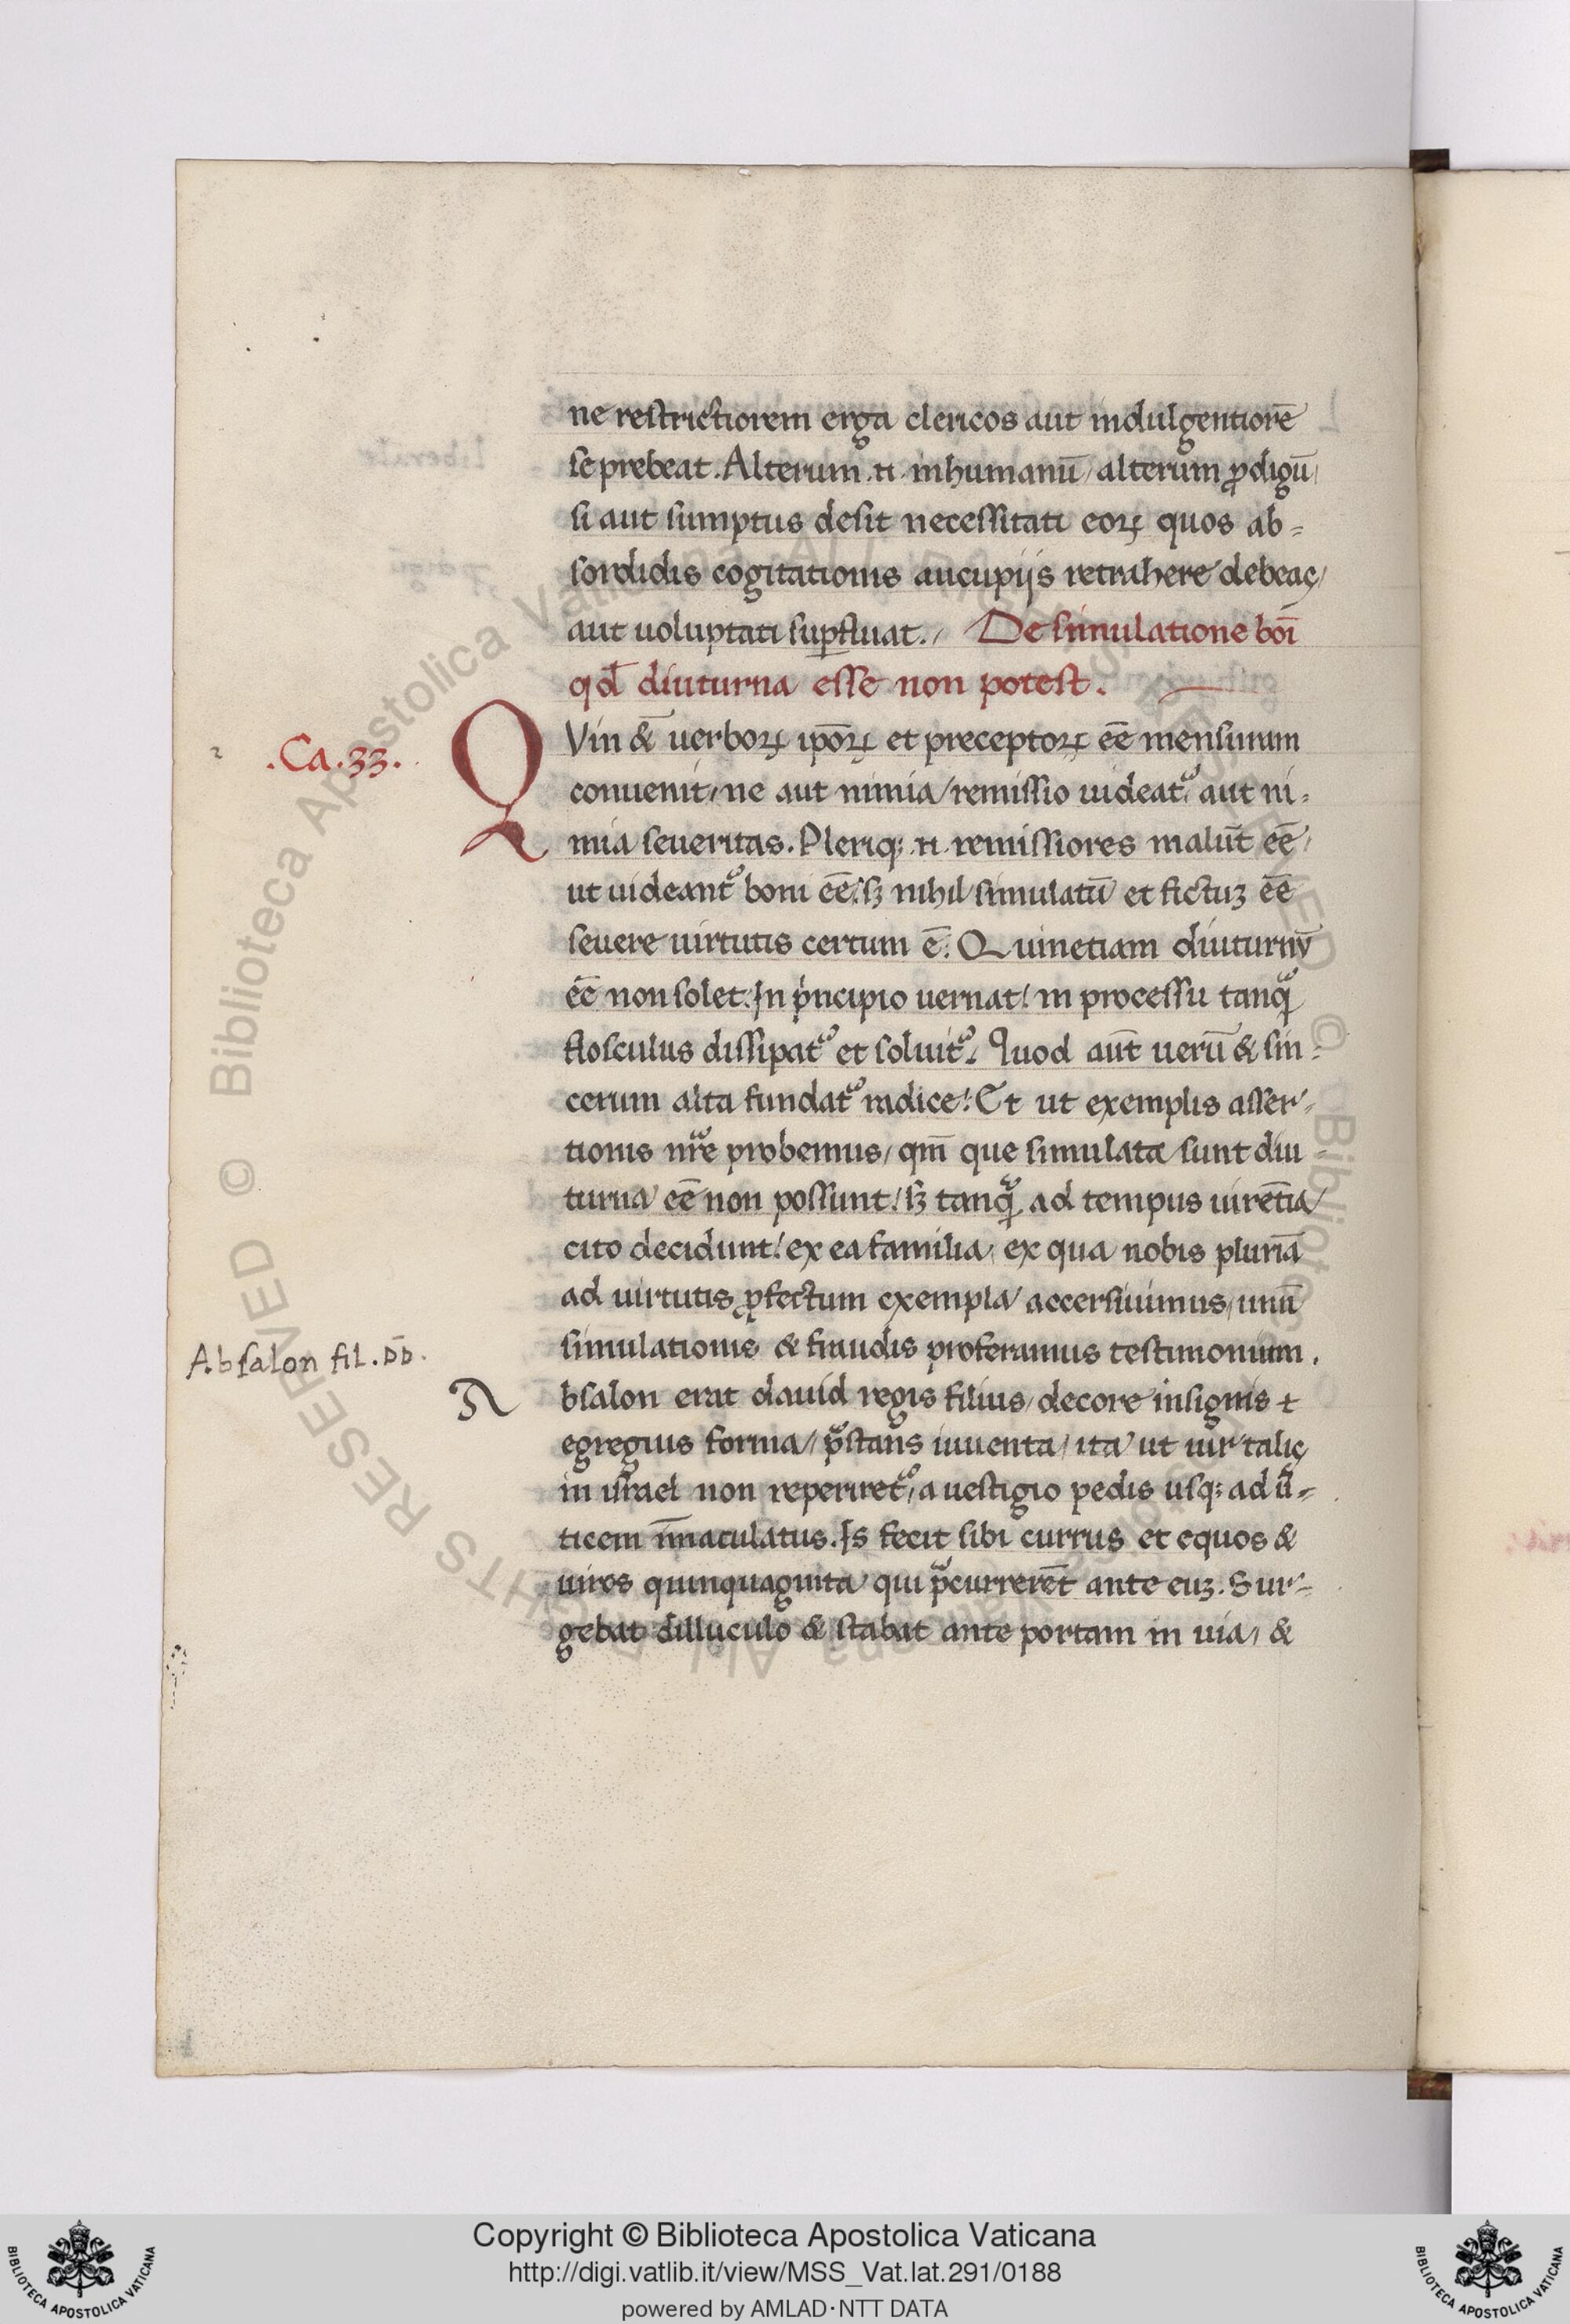 ne restrictiorem erga clericos aut indulgentiorē
se prebeat. Alterum .n. inhumanū, alterum ꝓdigū,
si aut sumptus desit necessitati eoꝝ quos ab=
sordidis cogitationis aucupijs retrahere debeaꝫ,
aut uoluptati suꝑfluat. De simulatione boī
qđ diuturna esse non potest.
.Ca.33.
QVin & uerboꝝ ipōꝝ et preceptoꝝ eē mensuram
conuenit, ne aut nimia remissio uideat᷑, aut ni=
mia seueritas. Pleriqꝫ .n. remissiores malūt eē,
ut uideant᷑ boni eē: sꝫ nihil simulatū et fictuꝫ eē
seuere uirtutis certum ē: Quinetiam diuturnū
eē non solet. In pͥncipio uernat: in processu tanqͣ
flosculus dissipat᷑ et soluit᷑. Quod aūt uerū & sin=
cerum alta fundat᷑ radice: Et ut exemplis asser=
tionis nr̄e probemus, qm̄ que simulata sunt diu=
turna eē non possunt: sꝫ tanqͣ ad tempus uirētia,
cito decidunt: ex ea familia, ex qua nobis plurīa
ad uirtutis ꝓfectum exempla accersiuimus, unū
simulationis & fraudis proferamus testimonium.
Absalon fil. DD.
Absalon erat dauid regis filius, decore insignis et
egregius forma, p̄stans iuuenta, ita ut uir talis
in israel non reperiret᷑, a uestigio pedis usqꝫ ad u͛=
ticem īmaculatus. Is fecit sibi currus et equos &
uiros quinquaginta qui p̄currerēt ante euꝫ. Sur=
gebat dilluculo & stabat ante portam in uia, &
© Biblioteca Apostolica Vaticana ALL RIGHTS RESERVED
Copyright © Biblioteca Apostolica Vaticana
http://digi.vatlib.it/view/MSS_Vat.lat.291/0188
powered by AMLAD·NTT DATA
BIBLIOTECA APOSTOLICA VATICANA
BIBLIOTECA APOSTOLICA VATICANA